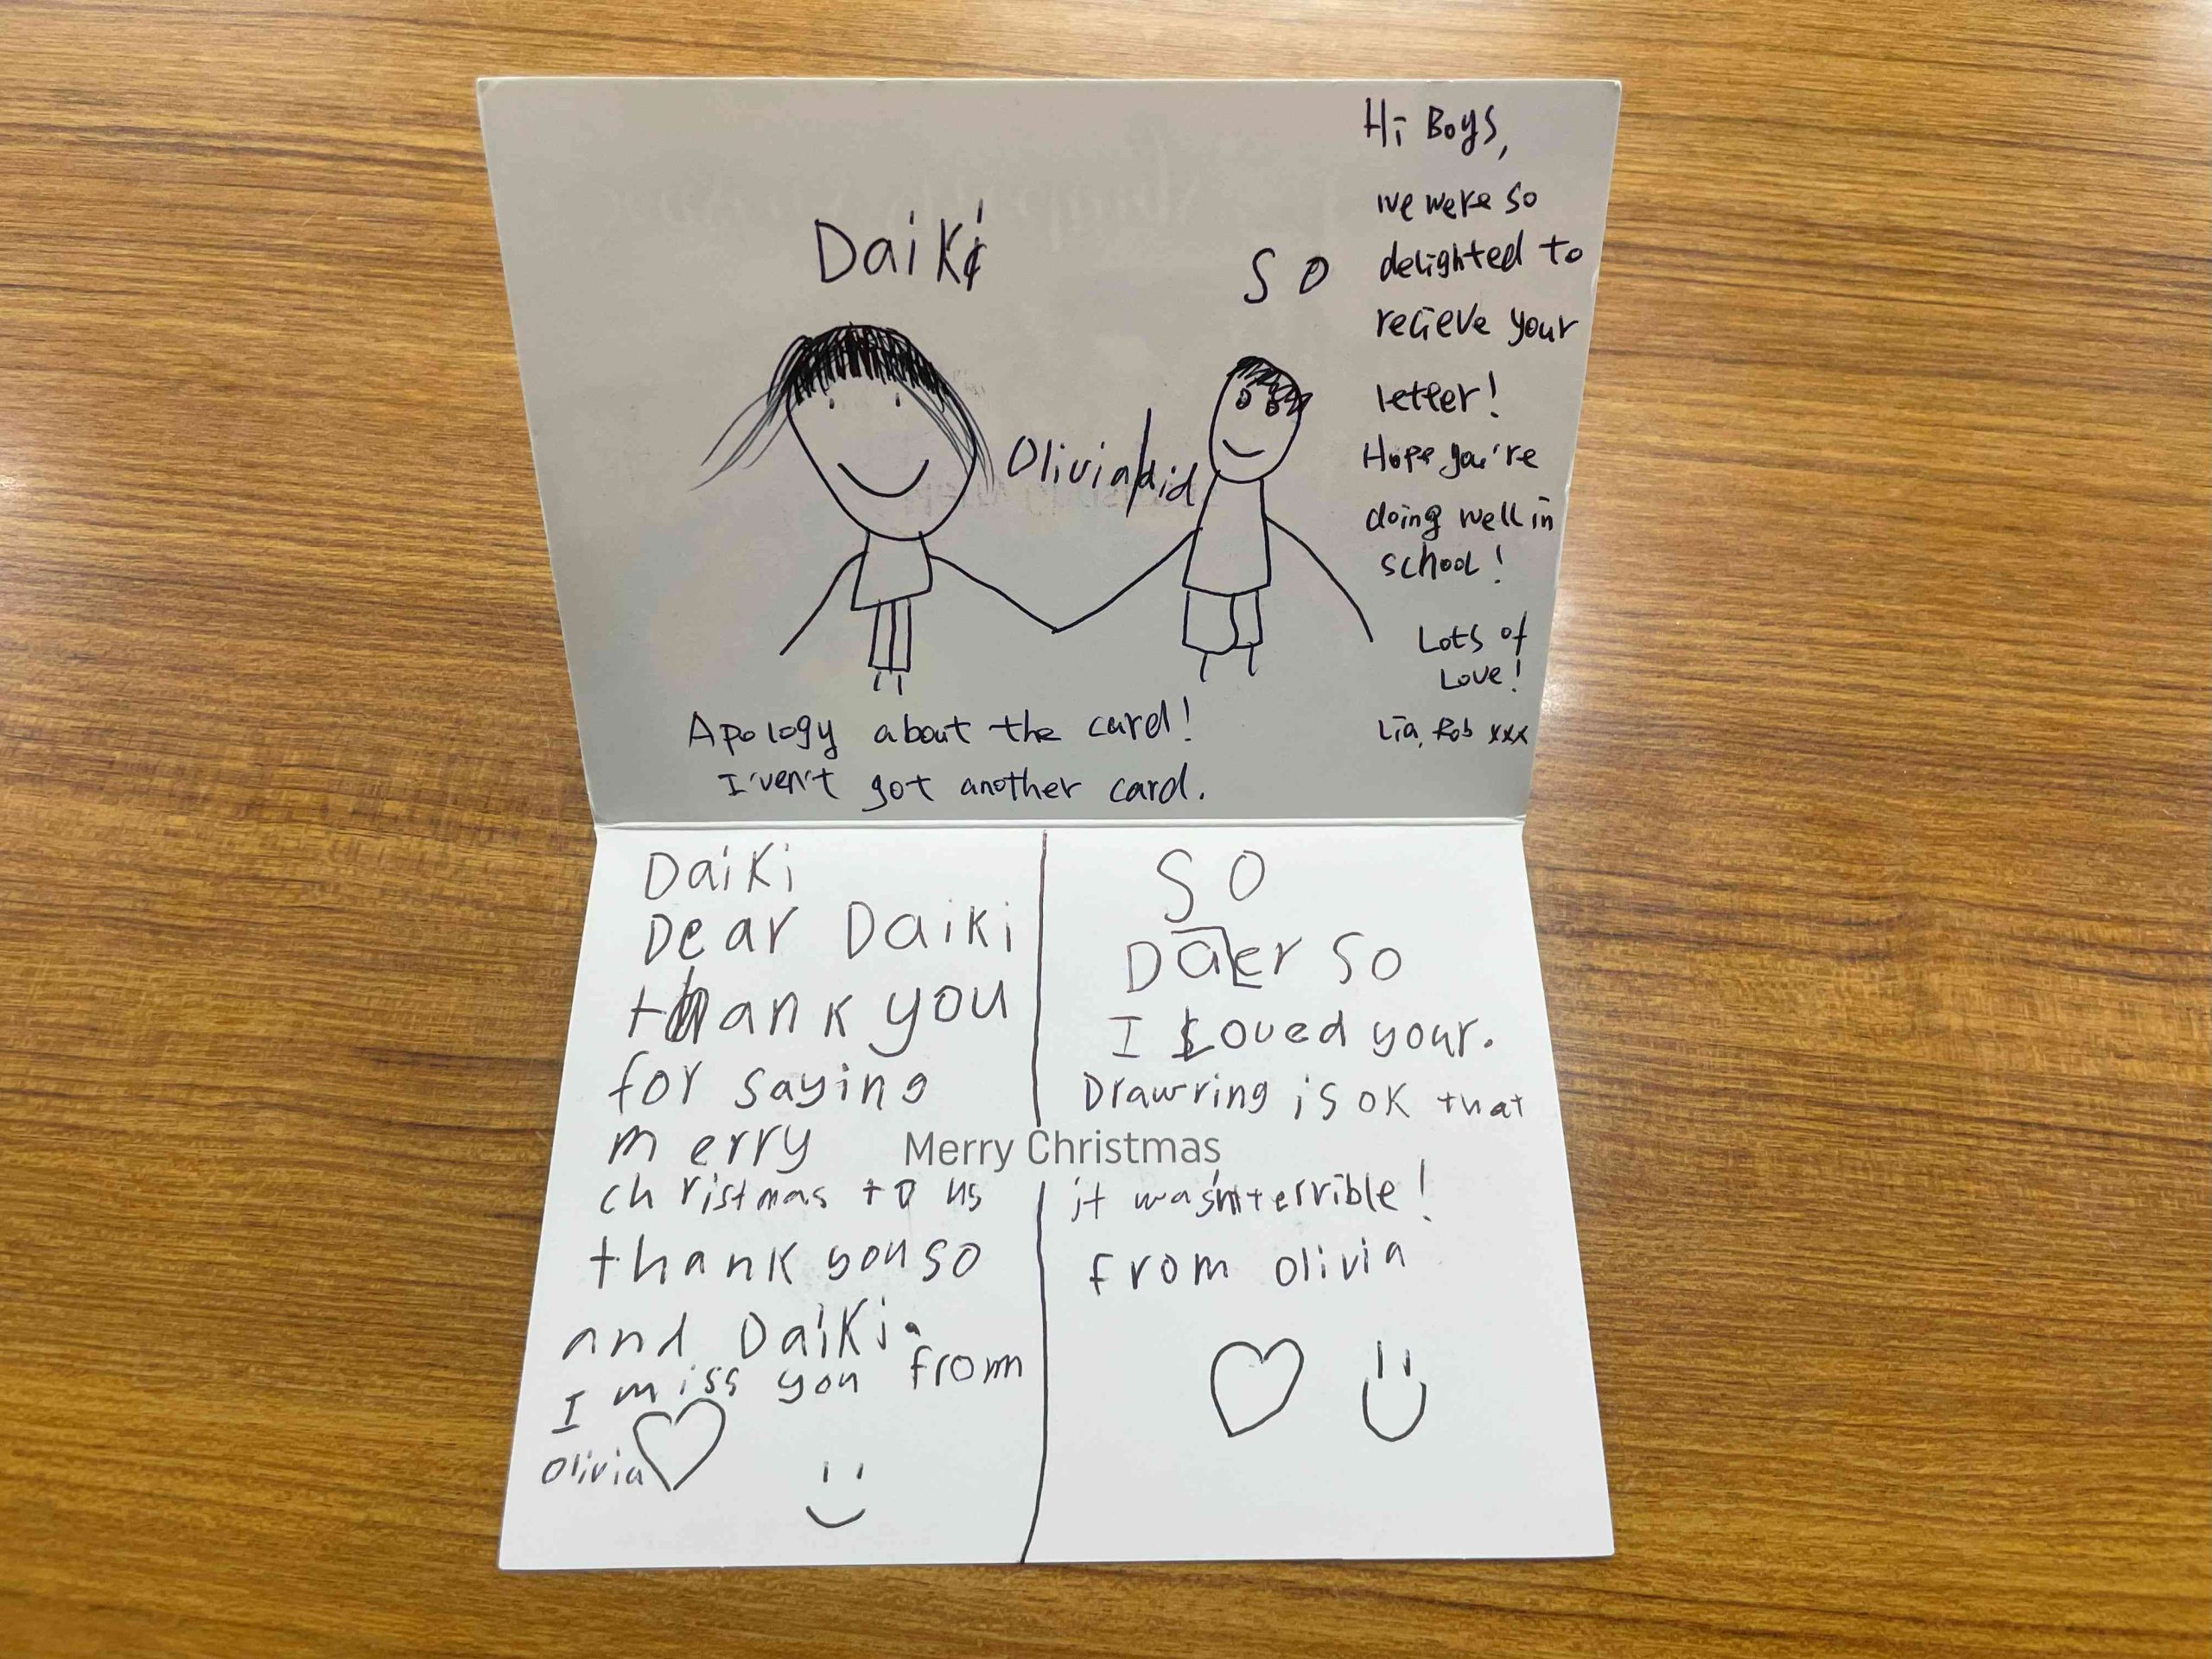 Daiki
SO
Olivia did
Hi Boys,
we were so
delighted to
recieve your
letter!
Hope you're
doing well in
school!
Lots of
Love!
Lia, Rob xxx
Apology about the card!
I'ven't got another card.
Daiki
Dear Daiki
thank you
for saying
merry
christmas to us
thank you so
and Daiki.
I miss you from
Olivia
Merry Christmas
SO
Daer So
I Loved your.
Drawring is ok that
it wasn't terrible!
from olivia